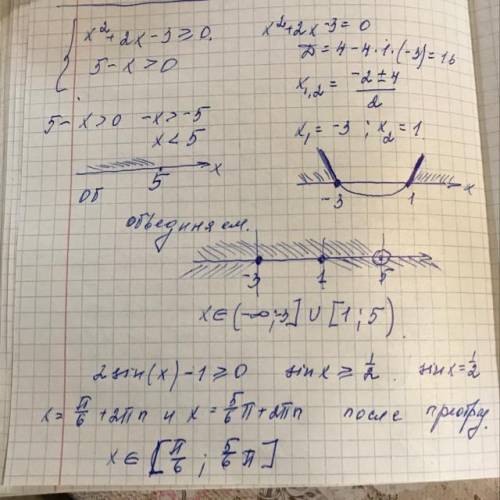 { x²+2x-3 ≥ 0.
5-x > 0
x²+2x-3=0
D = 4-4·1·(-3)=16
x₁,₂ = (-2±4)/2
x₁ = -3 ; x₂ = 1
5-x>0 -x>-5
x<5
5 x
Об
-3 1 x
объединяем.
-3 1 5
x∈(-∞;-3] ∪ [1; 5)
2sin(x)-1 ≥ 0 sinx ≥ 1/2. sinx=1/2
x = π/6 +2πn и x = 5/6 π+2πn после преобр.
x∈ [π/6 ; 5/6 π]